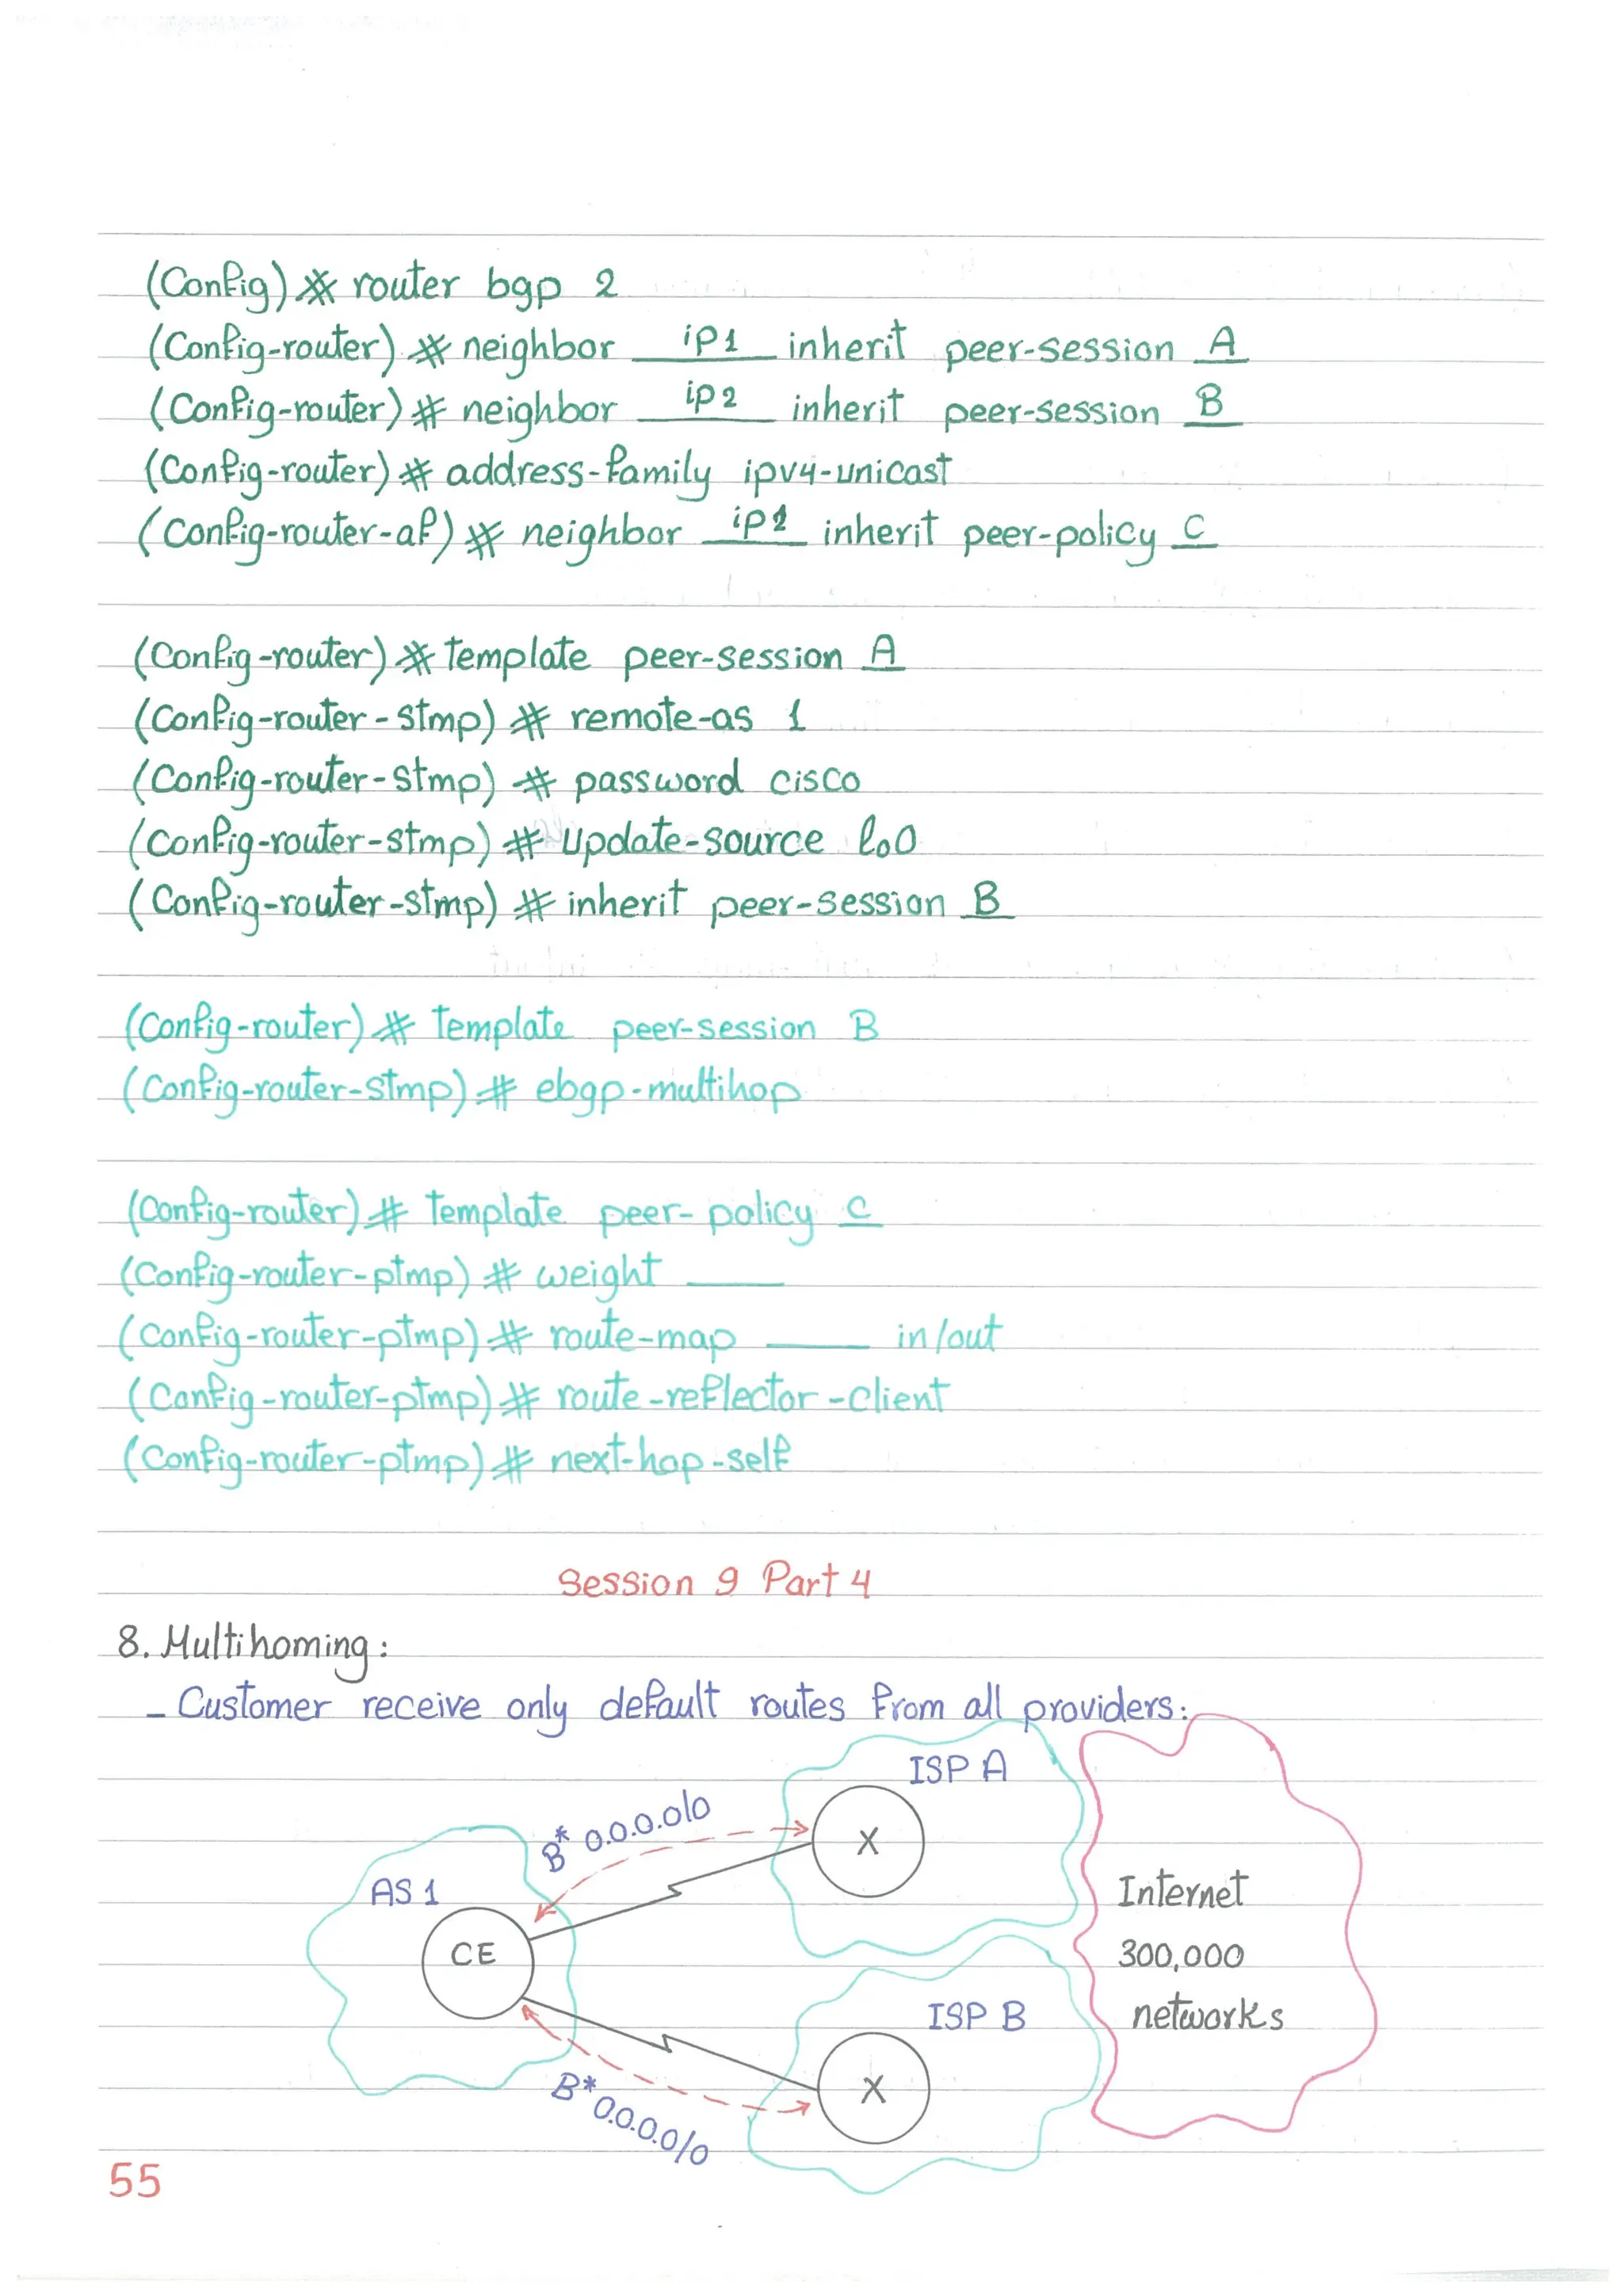 (Config)# router bgp 2
(Config-router)# neighbor ip1 inherit peer-session A
(Config-router)# neighbor ip2 inherit peer-session B
(Config-router)# address-family ipv4-unicast
(Config-router-af)# neighbor ip1 inherit peer-policy C
(Config-router)# template peer-session A
(Config-router-stmp)# remote-as 1
(Config-router-stmp)# password cisco
(Config-router-stmp)# Update-source lo0
(Config-router-stmp)# inherit peer-session B
(Config-router)# template peer-session B
(Config-router-stmp)# ebgp-multihop
(Config-router)# template peer-policy C
(Config-router-ptmp)# weight ____
(Config-router-ptmp)# route-map ____ in/out
(Config-router-ptmp)# route-reflector-client
(Config-router-ptmp)# next-hop-self
Session 9 Part 4
8. Multihoming:
- Customer receive only default routes from all providers:
ISP A
B* 0.0.0.0/0
X
AS 1
Internet
CE
300,000
ISP B
networks
X
B* 0.0.0.0/0
55